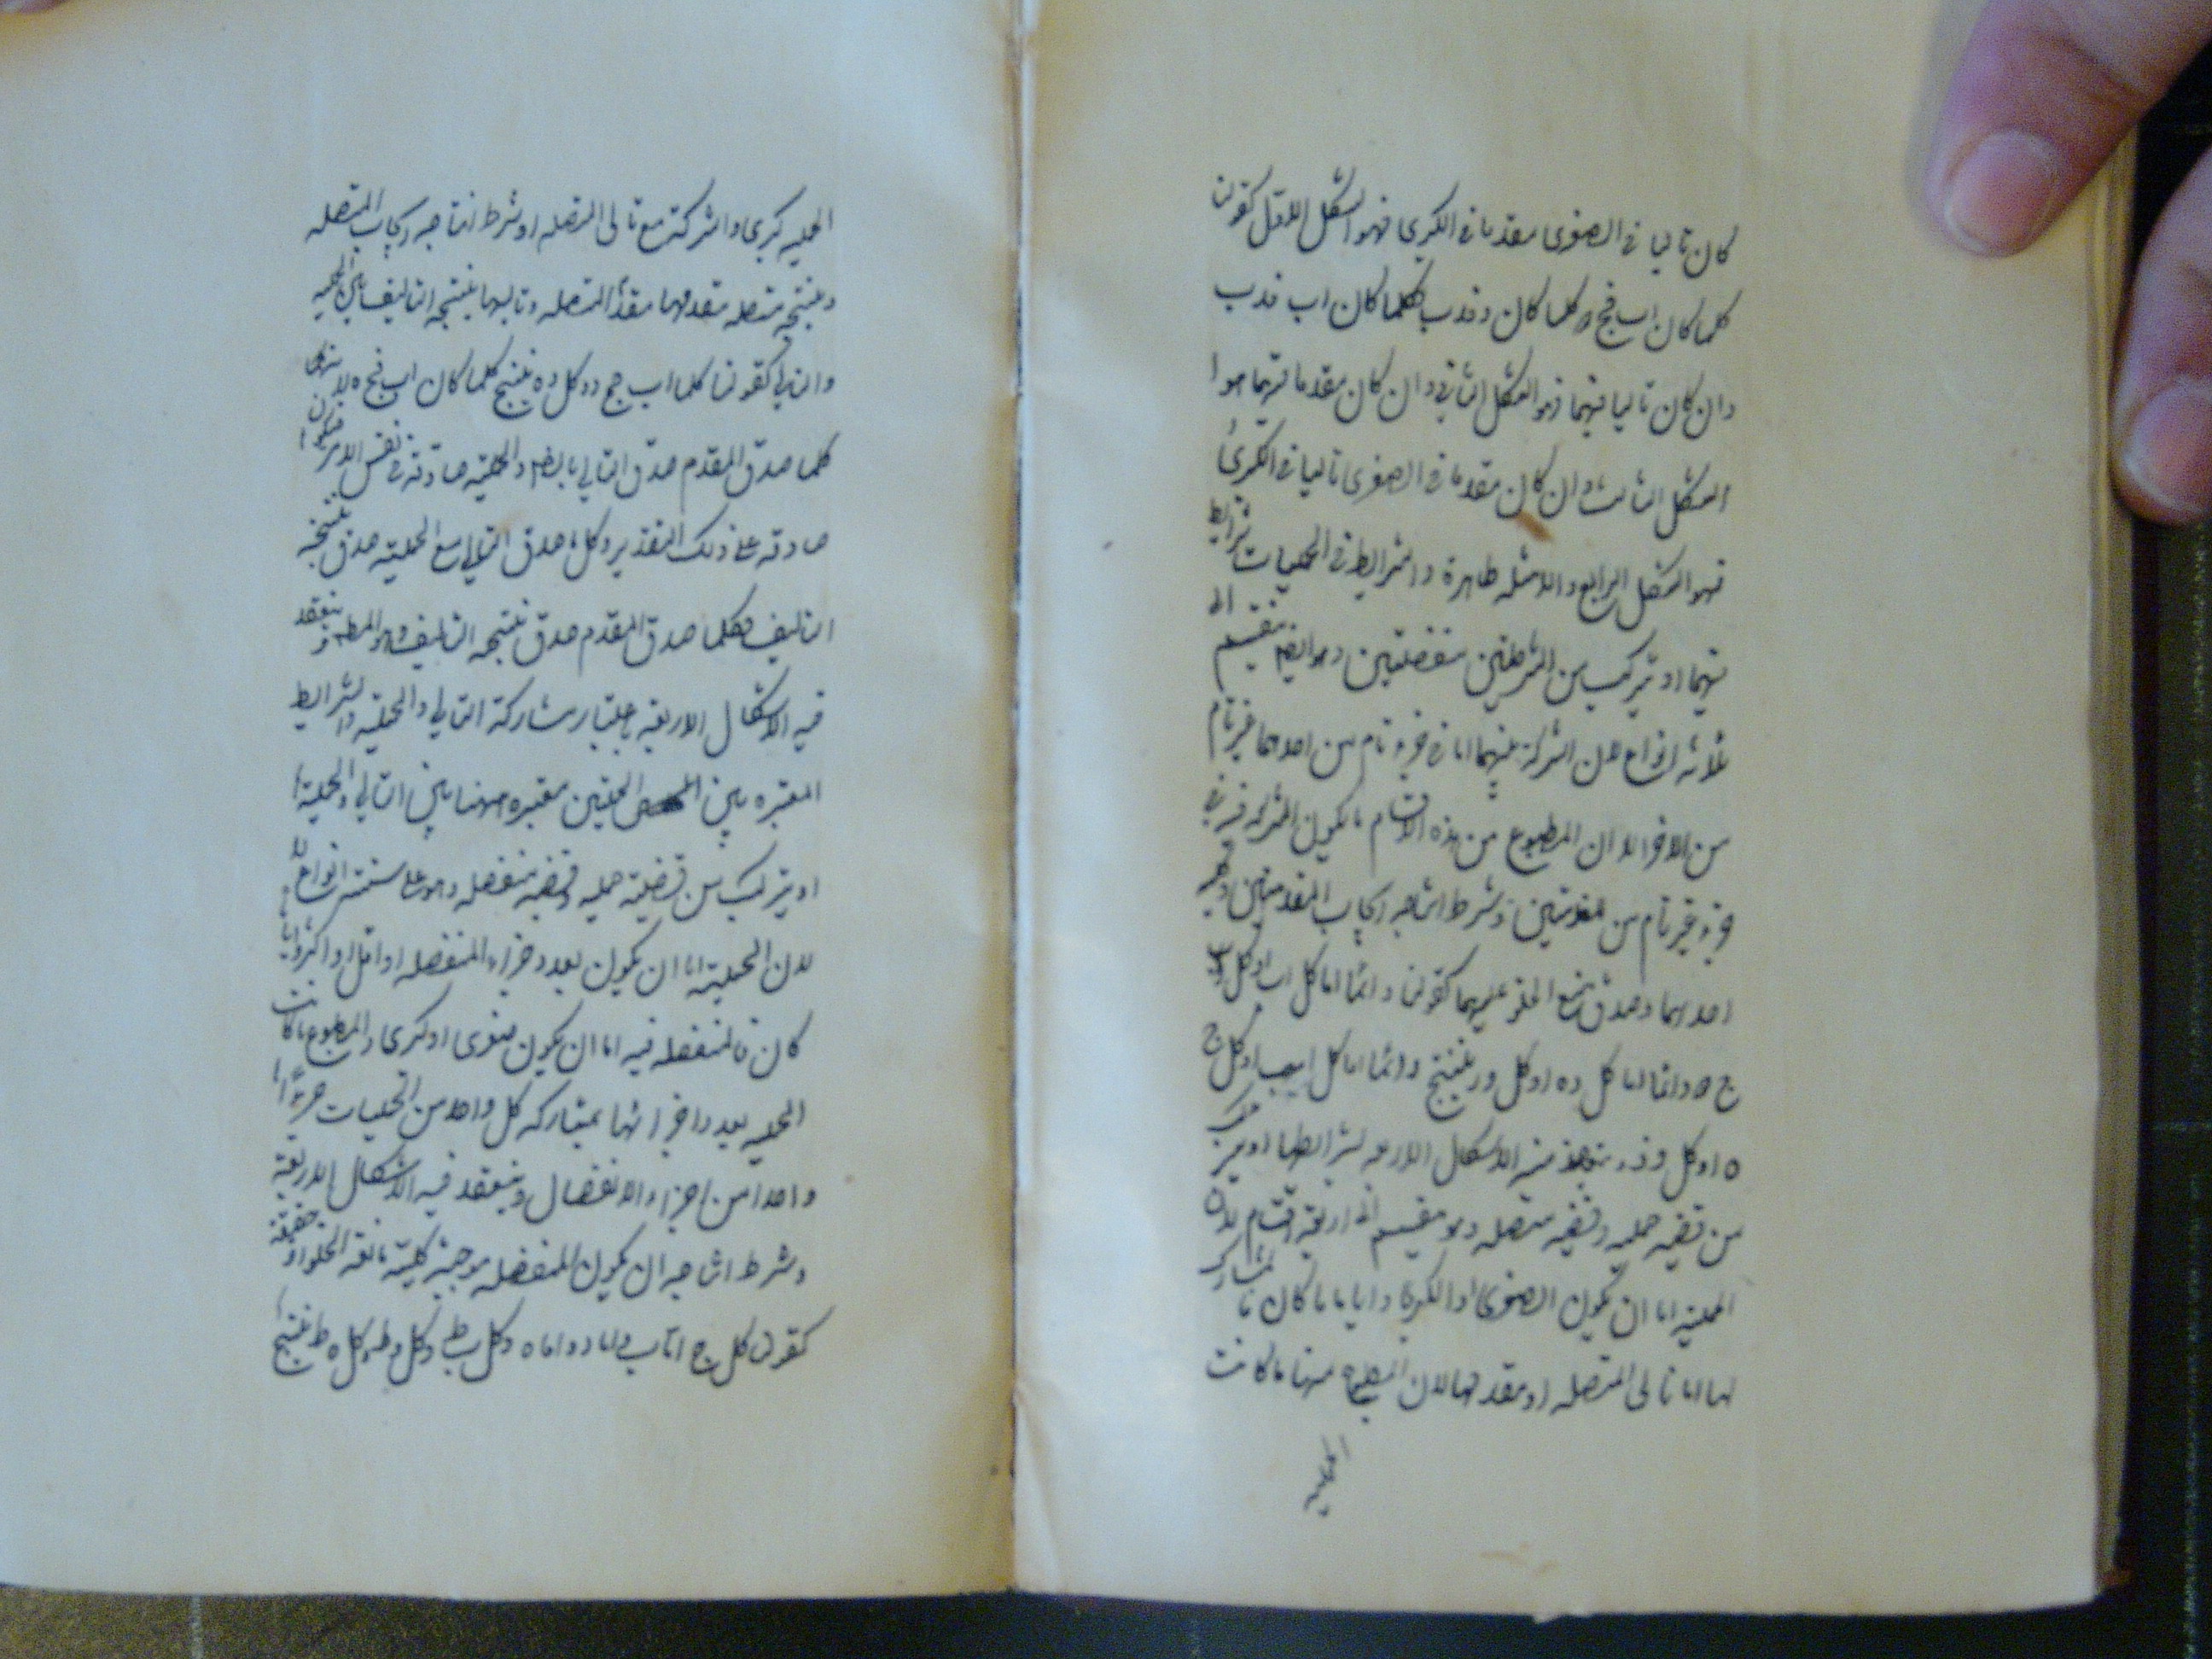 كان تاليا فى الصغرى مقدما فى الكبرى فهو الشكل الاول كقولنا
كلما كان اب فج د وكلما كان ج د فه ب فكلما كان اب فه ب
وان كان تاليا فيهما فهو الشكل الثانى وان كان مقدما فيهما هو ا
الشكل الثالث وان كان مقدما فى الصغرى تاليا فى الكبرى
فهو الشكل الرابع والامثله ظاهرة والشرايط فى الحمليات شرايط
فيهما او يتركب من الشرطيتين منفصلتين وهو ايضا منقسم الى
ثلاثه انواع لان الشركة بينهما اما فى جزء تام من احدهما غير تام
من الاخر الا ان المطبوع من هذه الاقسام ما يكون الشركه فيه فى
جزء غير تام من المقدمتين وشرط انتاجه ايجاب المقدمتين وكلية
احدهما وصدق منع الخلو عليهما كقولنا دائما اما كل اب او كل
ج د ودائما اما كل ده او كل ور ينتج دائما اما كل اب او كل ج
ه او كل وذ وينعقد فيه الاشكال الاربعه بشرايطها او يتركب
من قضيه حمليه وقضيه متصله وهو منقسم الى اربعة اقسام لان
الحملية اما ان يكون الصغرى او الكبرى وايا ما كان فالمشارك
لها اما تالى المتصله او مقدمها لان المطبوع منها ما كانت
الحمليه
الحمليه كبرى والشركة مع تالى المتصله وشرط انتاجه ايجاب المتصله
ونتيجه متصله مقدمها مقدم المتصله وتاليها نتيجه التاليف بين الحمليه
والتالى كقولنا كلما اب فج د وكل ده ينتج كلما كان اب فج ه لانه
كلما صدق المقدم صدق التالى بالضم والحملية صادقة فى نفس الامر فيكون
صادقه على ذلك التقدير وكلما صدق التالى مع الحملية صدق نتيجه
التاليف فكلما صدق المقدم صدق نتيجه التاليف وهو المطم وينعقد
فيه الاشكال الاربعة باعتبار مشاركة التالى والحمليه والشرايط
المعتبره بين الحمليتين معتبره ههنا بين التالى والحملية
او يتركب من قضية حمليه وقضيه منفصله وهو على ستة انواع
لان الحملية اما ان يكون بعدد اجزاء المنفصله او اقل او اكثر وايا ما
كان فالمنفصله فيه اما ان يكون صغرى او كبرى والمطبوع ما كانت
الحمليه بعدد اجزائها يشاركه كل واحد من الحمليات جزءا
واحدا من اجزاء الانفصال وينعقد فيه الاشكال الاربعة
وشرط انتاجه ان يكون المنفصله موجبة كلية مانعة الخلو او حقيقة
كقولنا كل ج اما ب واما د واما ه وكل ب ط وكل د ط وكل ه ط ينتج